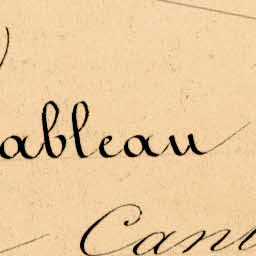 ableau
Cant